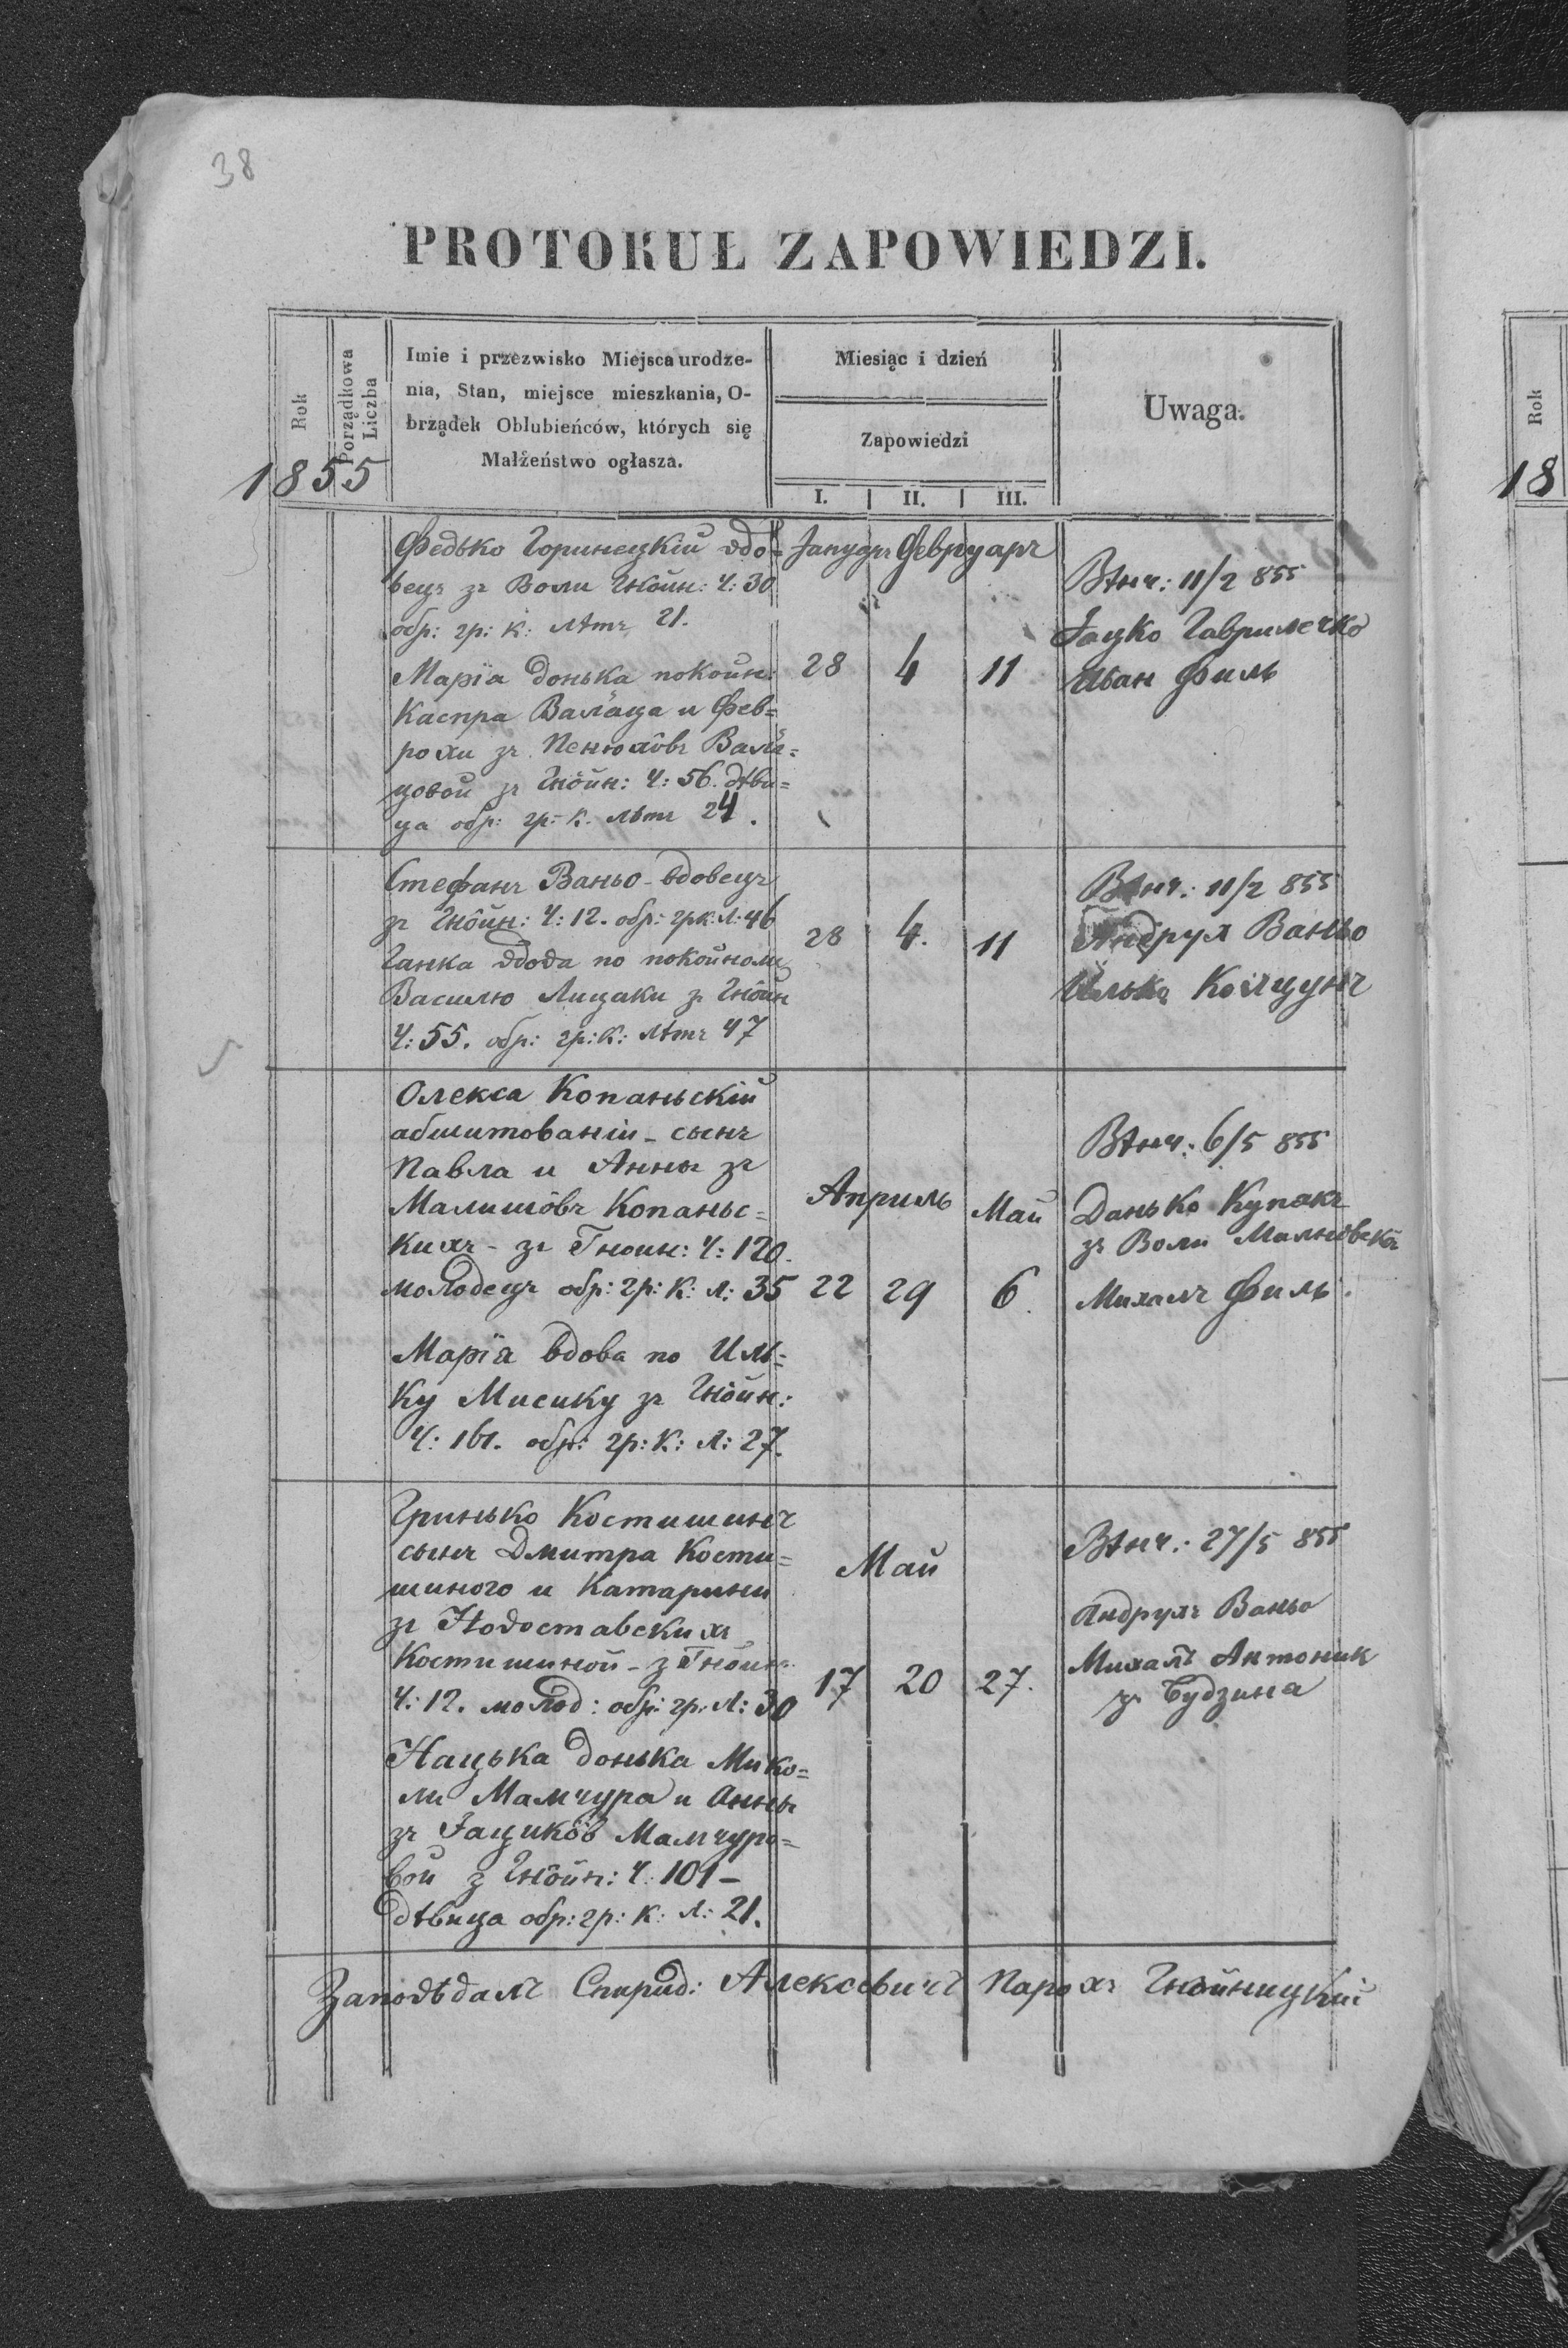 38
PROTOKUŁ ZAPOWIEDZI.
Rok
Porządkowa Liczba
Imie i przezwisko Miejsca urodze-
nia, Stan, miejsce mieszkania, O-
brządek Oblubieńców, których się
Małżeństwo ogłasza.
Miesiąc i dzień
Zapowiedzi
I. II. III.
Uwaga.
1855
Федько Горинецкій вдо=
вецъ зъ Воли Гнôйн: Ч: 30
обр: гр: к: лѣтъ 21.
Марїа донька покойн:
Каспра Валаца и Фев=
рохи зъ Пенюхôвъ Вала=
цовой зъ Гнôйн: Ч: 56. дѣви=
ца обр: гр: к: лѣтъ 24.
Januaръ Февруаръ
28 4 11
Вѣнч: 11/2 855
Jaцко Гаврилечко
Иван Филь
Стефанъ Ваньо - вдовецъ
зъ Гнôйн: Ч: 12. обр: грк: л: 46
Ганка вдова по покойному
Василю Лицаку зъ Гнôйн
Ч: 55. обр: гр: к: лѣтъ 47
28 4. 11
Вѣнч: 11/2 855
Андрух Ваньо
Илько
Олекса Копаньскій
абшитованій - сынъ
Павла и Анны зъ
Малишôвъ Копаньс=
кихъ - зъ Гноин: Ч: 120.
молодецъ обр: гр: к: л: 35
Марїа вдова по Иль=
ку Мисику зъ Гнôйн:
Ч: 161. обр: гр: к: л: 27.
Априль Май
22 29 6.
Вѣнч: 6/5 855
Данько Купакъ
зъ Воли
Михалъ Филь.
Гринько Костишинъ
сынъ Дмитра Кости=
шиного и Катарини
зъ Новоставскихъ
Костишиной - з Гнôйн:
Ч: 12. молод: обр: гр. л: 30
Нацька донька Мико=
ли Мамчура и Анны
зъ Jaциков Мамчуро=
вой з Гнôйн: Ч: 101 -
дѣвица обр: гр: к: л: 21.
Май
17 20 27.
Вѣнч: 27/5 855
Андрухъ Ваньо
Михалъ Антоник
зъ Будзина
Заповѣдалъ Спирид: Алексевичъ Парохъ Гнôйницкій
Rok
18